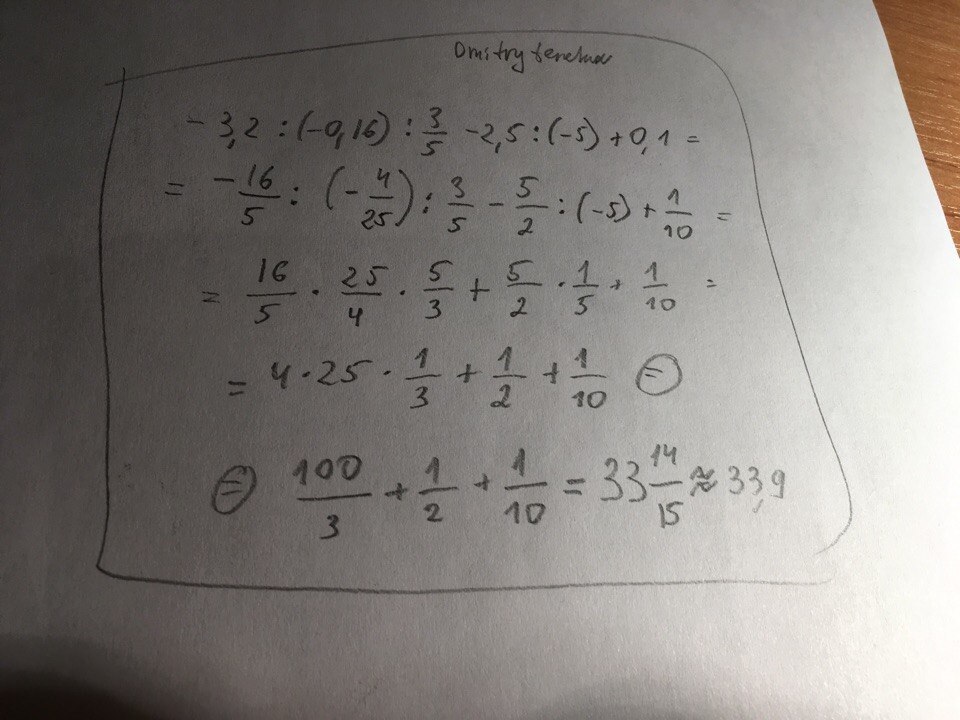 Dmitry
- 3,2 : (-0,16) : 3/5 - 2,5 : (-5) + 0,1 =
= -16/5 : (-4/25) : 3/5 - 5/2 : (-5) + 1/10 =
= 16/5 · 25/4 · 5/3 + 5/2 · 1/5 + 1/10 =
= 4 · 25 · 1/3 + 1/2 + 1/10 ⊜
⊜ 100/3 + 1/2 + 1/10 = 33 14/15 ≈ 33,9